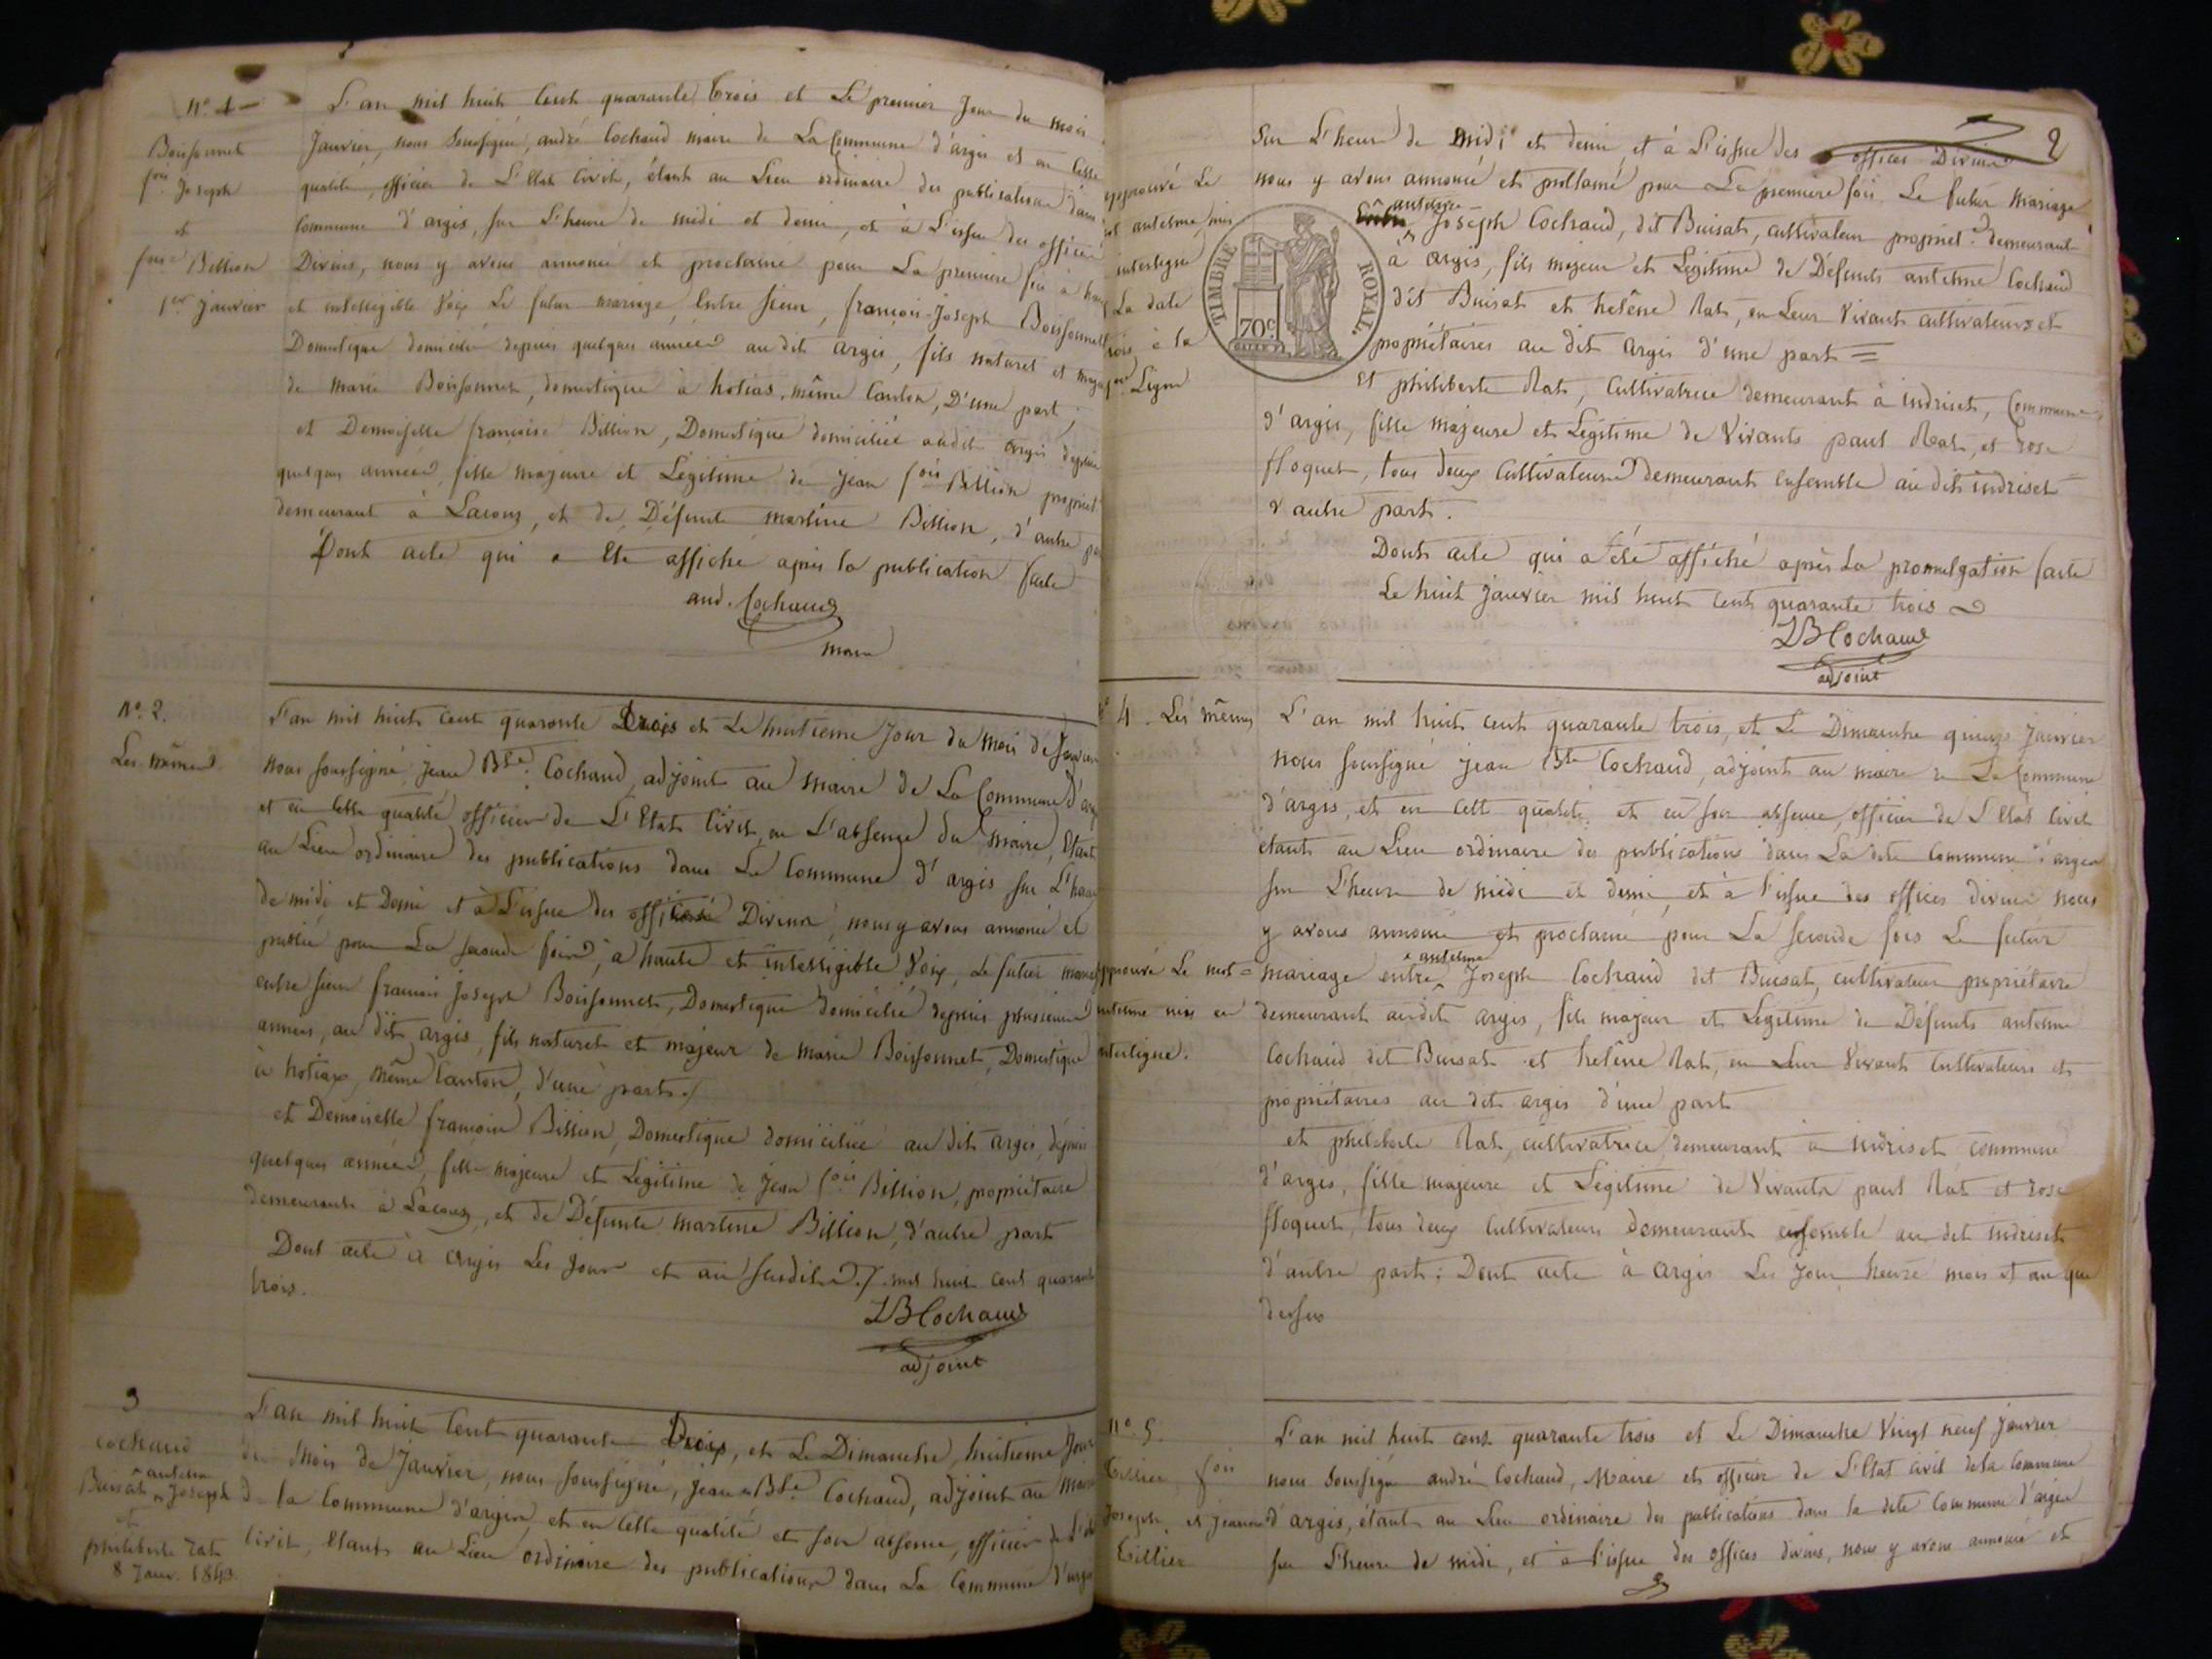 n.o 1
Boissonnet
f.ois Joseph
et
fse Billion
1er Janvier
L'an mil huit Cent quarante trois et Le premier Jour du mois
Janvier, nous soussigné, andré Cochaud maire de La Commune d'argis et en Cette
qualité, officier de L'Etat Civil, étant au Lieu ordinaire des publications dans
Commune d'argis, sur L'heure de midi et demi, et à L'issue des offices
Divins, nous y avons annoncé et proclamé pour La première fois à
et intelligible Voix Le futur mariage, Entre sieur, françois-Joseph Boissonnet
Domestique domicilié depuis quelques années au dit argis, fils naturel et
de marie Boissonnet, domestique à hotias, même Canton, D'une part,
et Demoiselle françoise Billion, Domestique domiciliée audit argis depuis
quelques années, fille majeure et Légitime de Jean fois Billion propriet
demeurant à Lacoux, et de Défunte martine Billion, d'autre
Dont acte qui a Eté affiché après la publication faite
and. Cochaud
maire
N.o 2.
Les mêmes
L'an mil huit cent quarante Trois et Le huitieme Jour du mois de Janvier
nous soussigné Jean Bte Cochaud, adjoint au maire de La Commune d'
et en Cette qualité officier de L'Etat Civil, en L'absence du maire, Etant
au Lieu ordinaire des publications dans La Commune d'argis sur L'heure
de midi et Demi et à L'issue des offices Divins, nous y avons annoncé et
publié pour La seconde fois, à haute et intelligible Voix, Le futur
entre sieur françois Joseph Boissonnet, Domestique domicilié depuis plusieurs
années, au dit argis, fils naturel et majeur de marie Boissonnet, Domestique
à hotiax, même Canton, d'une part
et Demoiselle françoise Billion, Domestique domiciliée au dit argis, depuis
quelques années, fille majeure et Légitime de Jean fois Billion, propriétaire
demeurant à Lacoux, et de Défunte martine Billion, d'autre part
Dont acte à argis Les Jour et an susdits mil huit cent quarante
trois.
JBCochaud
adjoint
3
cochaud
anthelme
Buisat Joseph
et
philiberte rat
8 Janv. 1843.
L'an mil huit Cent quarante Trois, et Le Dimanche, huitieme Jour
du Mois de Janvier, nous soussigné, Jean Bte Cochaud, adjoint au Maire
de la Commune d'argis, et en Cette qualité et son absence, officier de L'
Civil, Etant au Lieu ordinaire des publications dans La Commune d'argis
2
Sur L'heure de midi et demi et à L'issue des offices Divins
nous y avons annoncé et proclamé pour La première fois Le futur Mariage
antelme
Entre Joseph Cochaud, dit Buisat, cultivateur propriet. demeurant
à argis, fils majeur et Légitime de Défunts antelme Cochaud
dit Buisat et helène Rat, en Leur Vivant cultivateurs et
propriétaires au dit argis d'une part =
Et philiberte Rat, Cultivatrice demeurant à indriset, Commune
d'argis, fille majeure et Légitime de Vivants paul Rat, et rose
floquet, tous deux Cultivateurs demeurant ensemble au dit indriset
d'autre part.
Dont acte qui a été affiché après La promulgation faite
Le huit Janvier mil huit cent quarante trois
JBCochaud
adjoint
approuvé Le
mot antelme, mis
interligne
La date
trois, à la
Ligne
TIMBRE ROYAL.
70c
4. Les mêmes
L'an mil huit cent quarante trois, et Le Dimanche quinze Janvier
nous soussigné Jean Bte Cochaud, adjoint au maire de La Commune
d'argis, et en cette qualité, et en son absence, officier de L'Etat Civil
étant au Lieu ordinaire des publications dans La dite Commune d'argis
sur L'heure de midi et demi, et à l'issue des offices divins nous
y avons annoncé et proclamé pour La seconde fois Le futur
antelme
mariage entre Joseph Cochaud dit Buisat, cultivateur propriétaire
demeurant audit argis, fils majeur et Légitime de Défunts antelme
Cochaud dit Buisat et helène Rat, en Leur Vivant Cultivateurs et
propriétaires au dit argis d'une part
et philiberte Rat, cultivatrice demeurant à indriset commune
d'argis, fille majeure et Légitime de Vivants paul Rat et rose
floquet, tous deux Cultivateurs demeurant ensemble au dit indriset
d'autre part; Dont acte à argis Les Jour heure mois et an que
dessus
approuvé Le mot =
antelme mis en
interligne.
n.o 5.
Tillier fois
Joseph, et Jeanne
Tillier
L'an mil huit cent quarante trois et Le Dimanche Vingt neuf Janvier
nous soussigné andré Cochaud, Maire et officier de L'Etat civil de la Commune
d'argis, étant au Lieu ordinaire des publications dans la dite Commune d'argis
sur L'heure de midi, et à l'issue des offices divins, nous y avons annoncé et